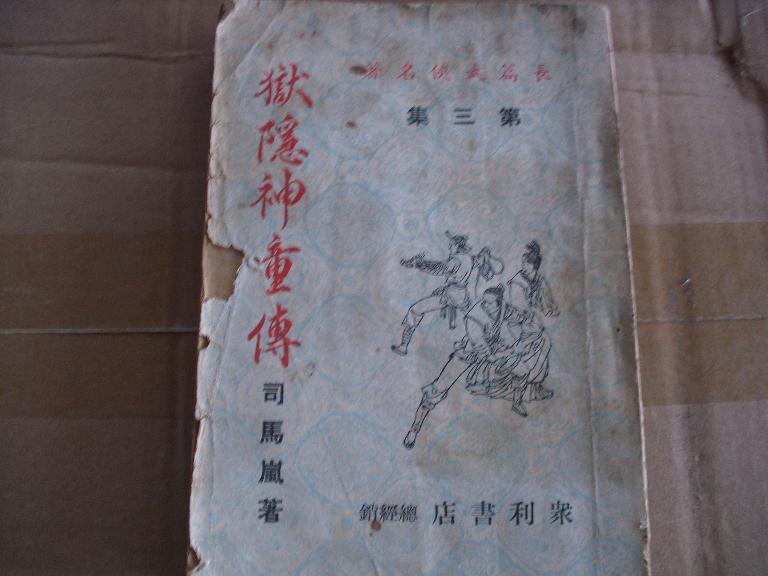 長篇武俠名著
第三集
獄隱神童傳
司馬嵐著
衆利書店總經銷